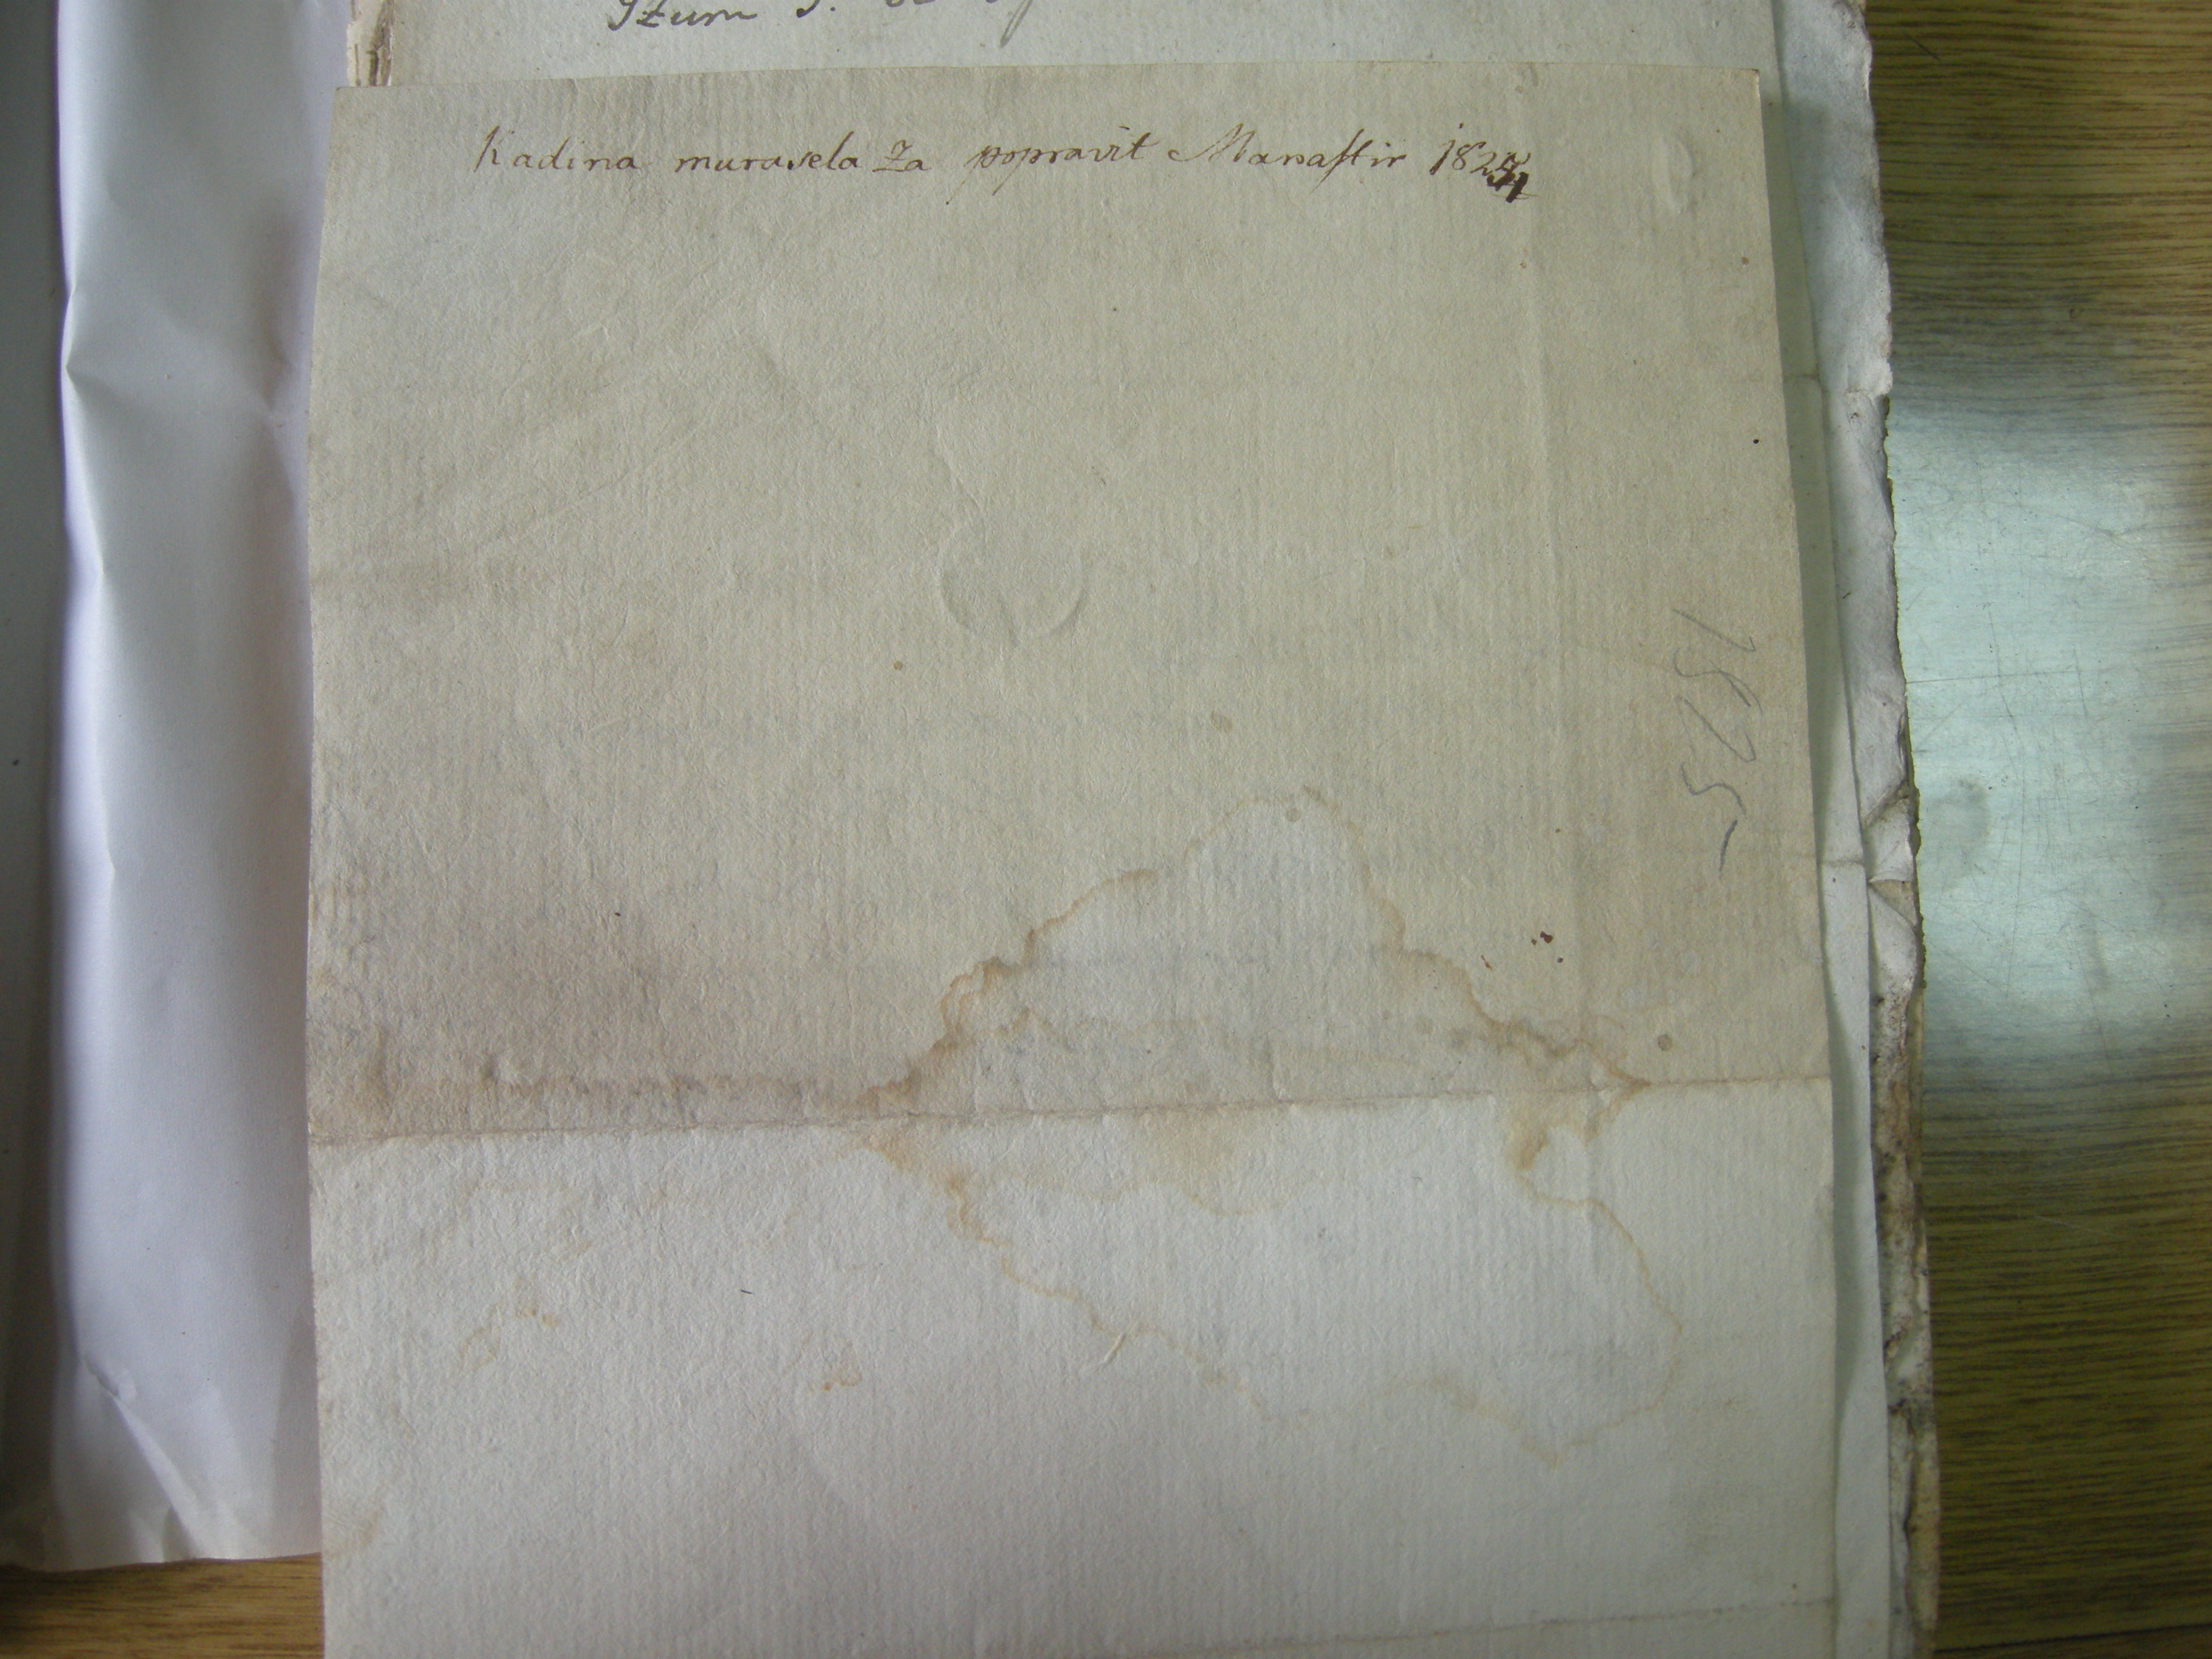 Kadina murasela Za popravit Manastir 1824
1825